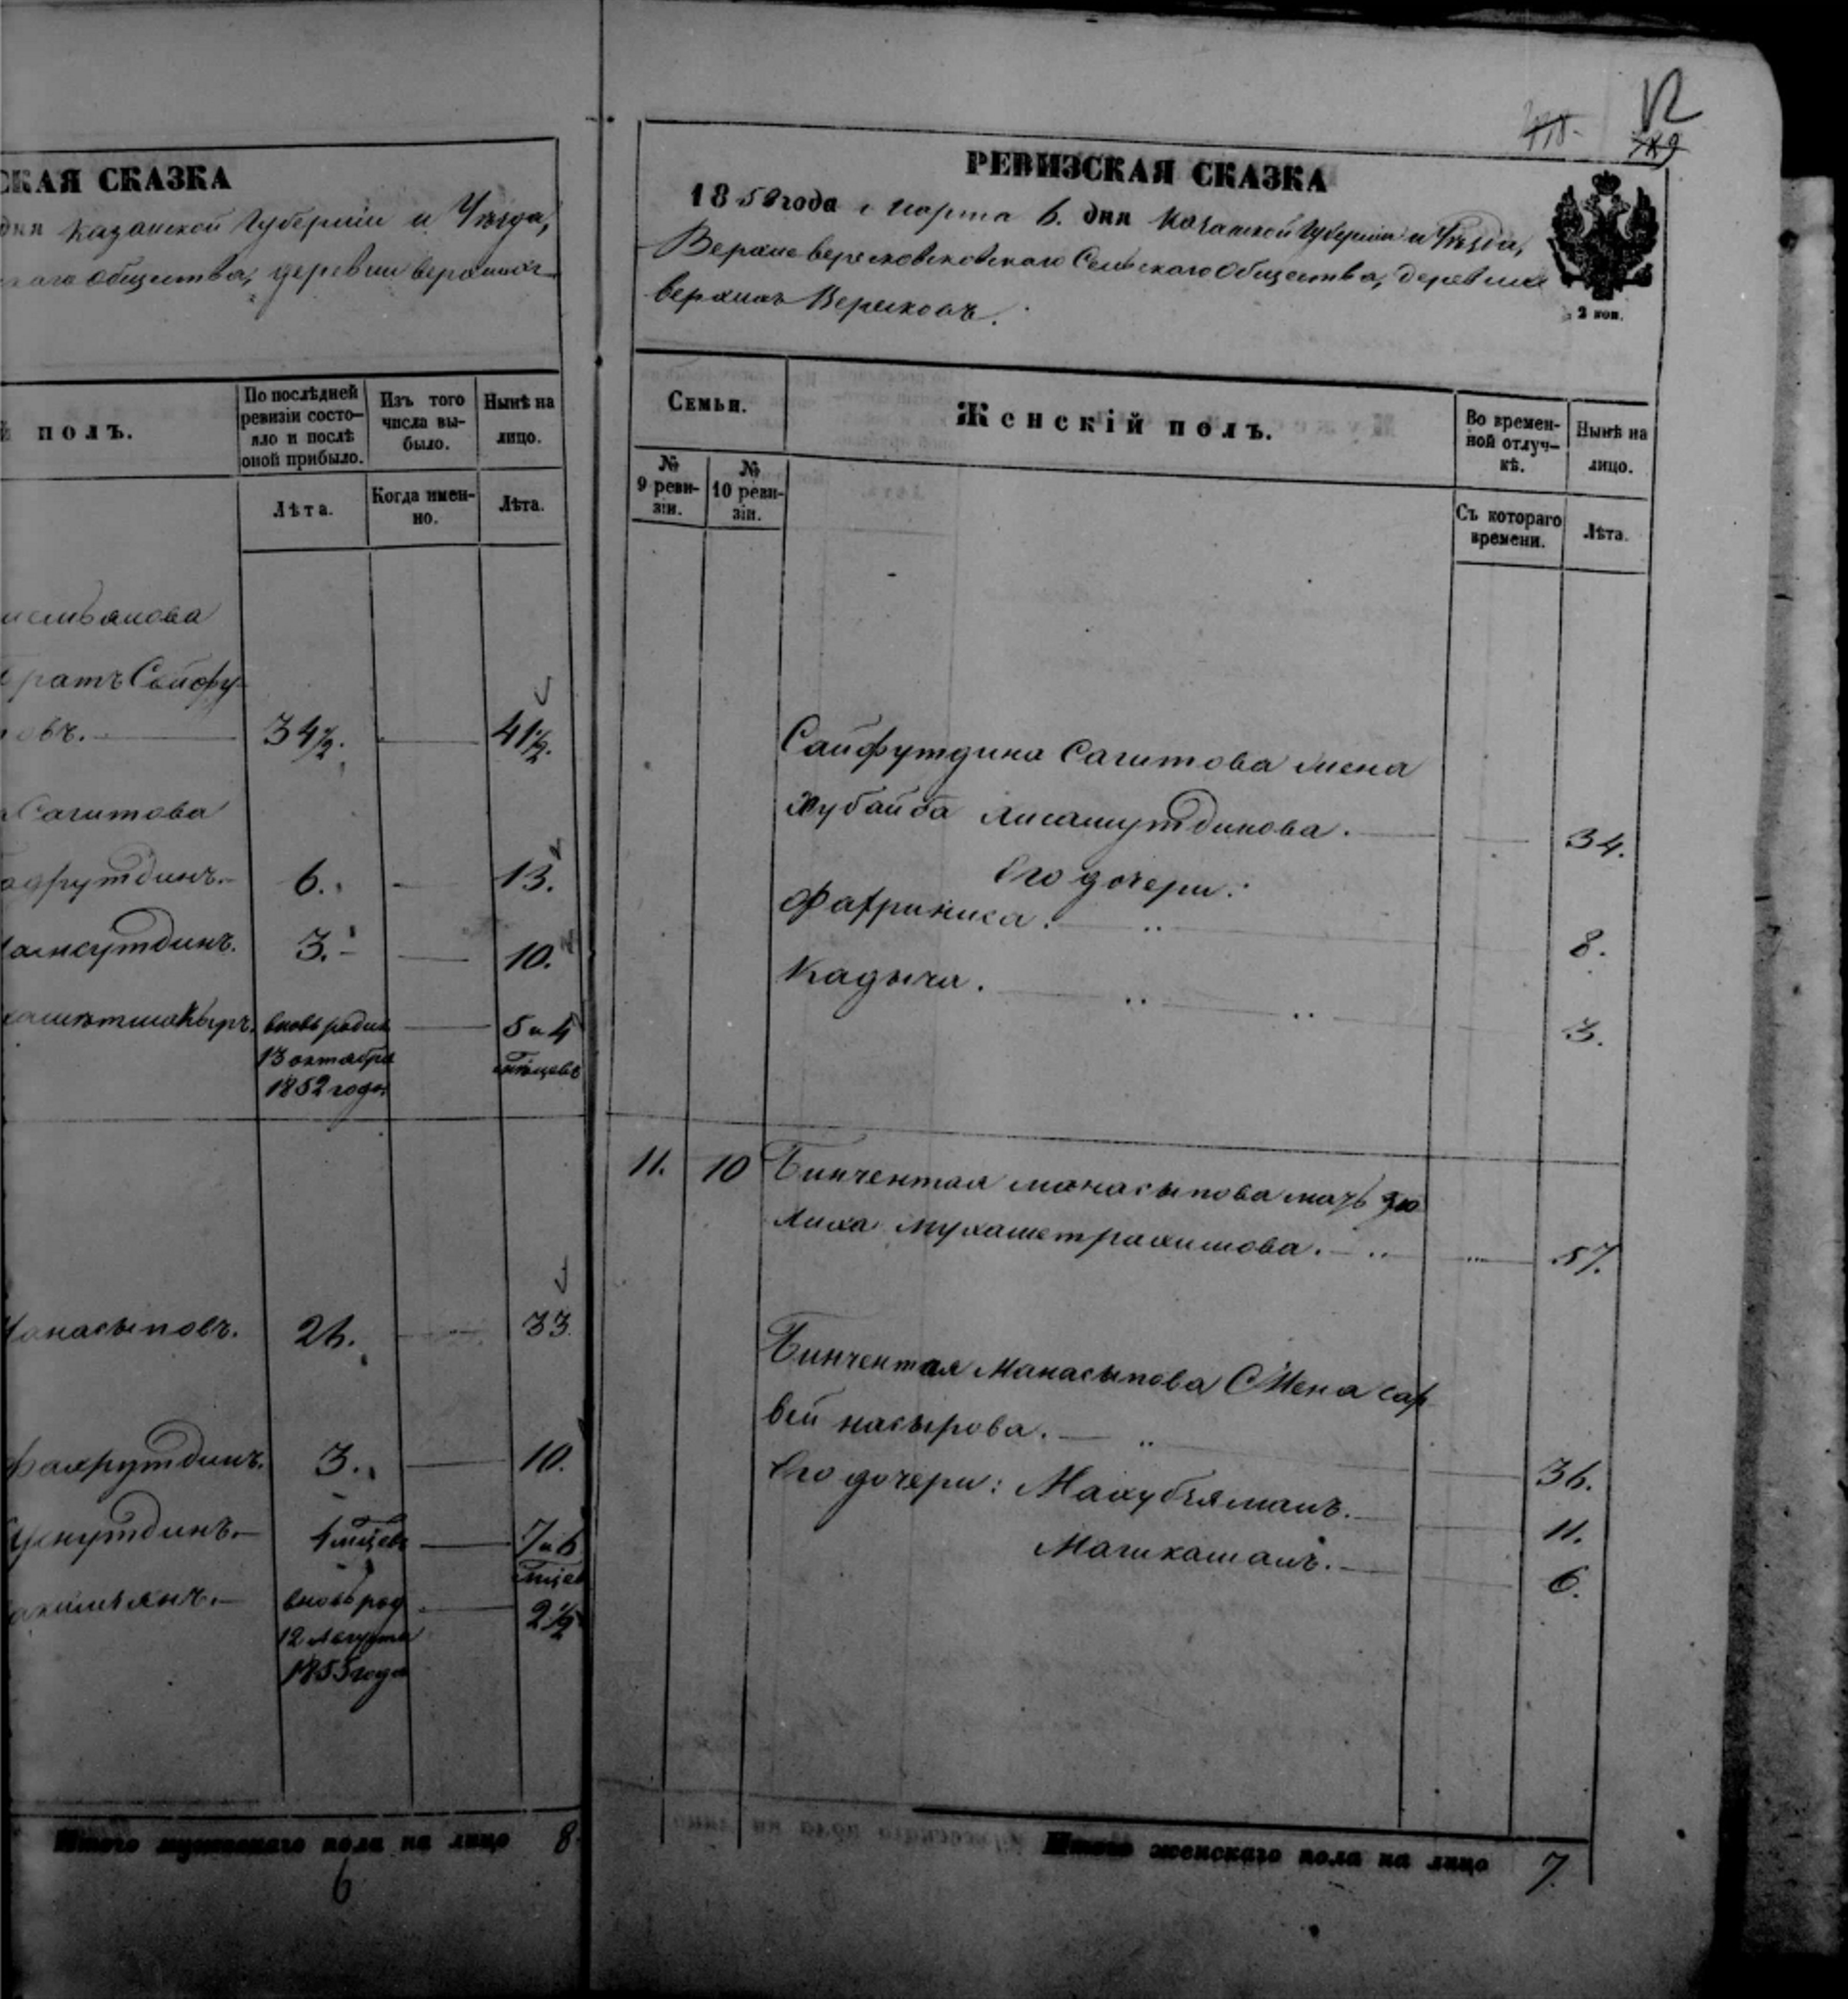 СКАЯ СКАЗКА
дня Казанской Губернии и Уезда,
скаго общества, деревни верхнихъ
й полъ.
По послѣдней ревизіи состояло и послѣ оной прибыло.
Изъ того числа выбыло.
Нынѣ на лицо.
Лѣта.
Когда именно.
Лѣта.
братъ Сайфу-
новъ. 34½. 41½.
Сагитова
адрутдинъ. 6. 13.
3. 10.
вновь родил 5 и 4
13 октября мѣсяцевъ
1852 года
Манасыповъ. 26. 33
Фахрутдинъ. 3. 10.
4 мѣсяц 7 и 6
вновь род 2½
12 Августа
1855 года
Итого мужескаго пола на лицо 8
6
12
718
719
РЕВИЗСКАЯ СКАЗКА
1858 года марта 6. дня Казанской Губернии и Уезда,
Сельскаго Общества, деревни
верхнихъ Вересковъ.
2 коп.
Семьи.
Женскій полъ.
Во временной отлучкѣ.
Нынѣ на лицо.
№ 9 ревизіи.
№ 10 ревизіи.
Съ котораго времени.
Лѣта.
Сайфутдина Сагитова жена
Хубайба Хисамутдинова. 34.
Его дочери:
8.
Кадыча. 3.
11. 10 Бинчентая манасыпова мать Зю
лиха мухаметрахимова. 57.
Бинчентая Манасыпова Жена сар
вей насырова. 36.
Его дочери: Махубзяманъ. 11.
Магикамалъ. 6.
Итого женскаго пола на лицо 7.